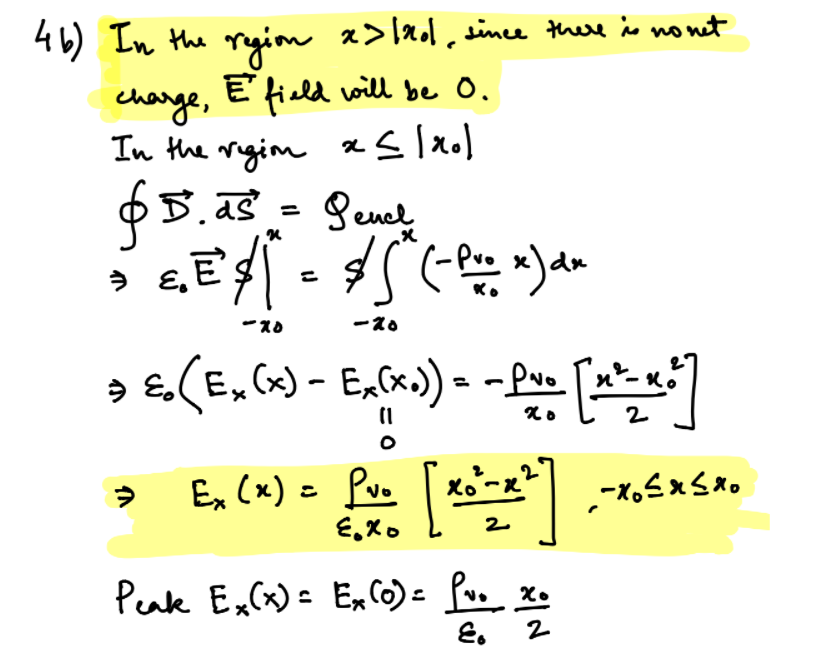 4b) In the region x>|x₀|, since there is no net
charge, E⃗ field will be 0.
In the region x ≤ |x₀|
∮ D⃗ . dS⃗ = Qencl
⇒ ε₀ E⃗ S |_{-x₀}^{x} = S ∫_{-x₀}^{x} (-ρv₀/x₀ x) dx
⇒ ε₀ (Eₓ(x) - Eₓ(x₀)) = -ρv₀/x₀ [(x² - x₀²)/2]
||
0
⇒ Eₓ(x) = ρv₀/(ε₀x₀) [(x₀² - x²)/2] , -x₀ ≤ x ≤ x₀
Peak Eₓ(x) = Eₓ(0) = ρv₀/ε₀ x₀/2